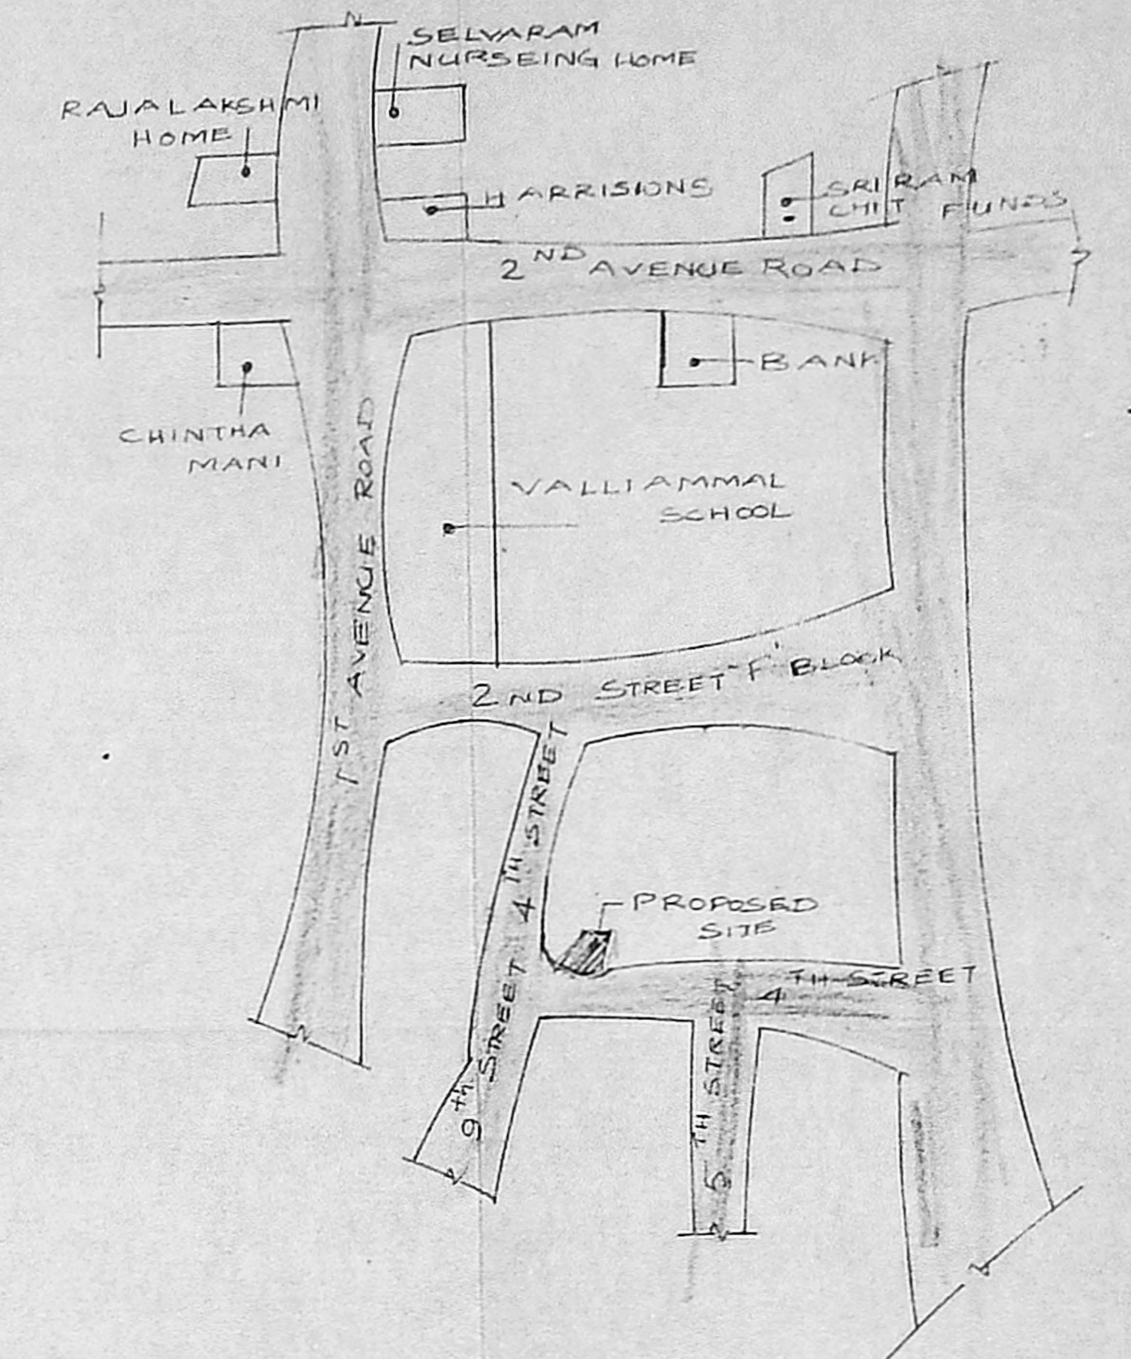 SELVARAM
NURSEING HOME
RAJALAKSHMI
HOME
HARRISIONS
SRI RAM
CHIT FUNDS
2ND AVENUE ROAD
BANK
CHINTHA
MANI
VALLIAMMAL
SCHOOL
1ST AVENUE ROAD
2ND STREET 'F' BLOCK
4TH STREET
PROPOSED
SITE
4TH STREET
9th STREET
5TH STREET